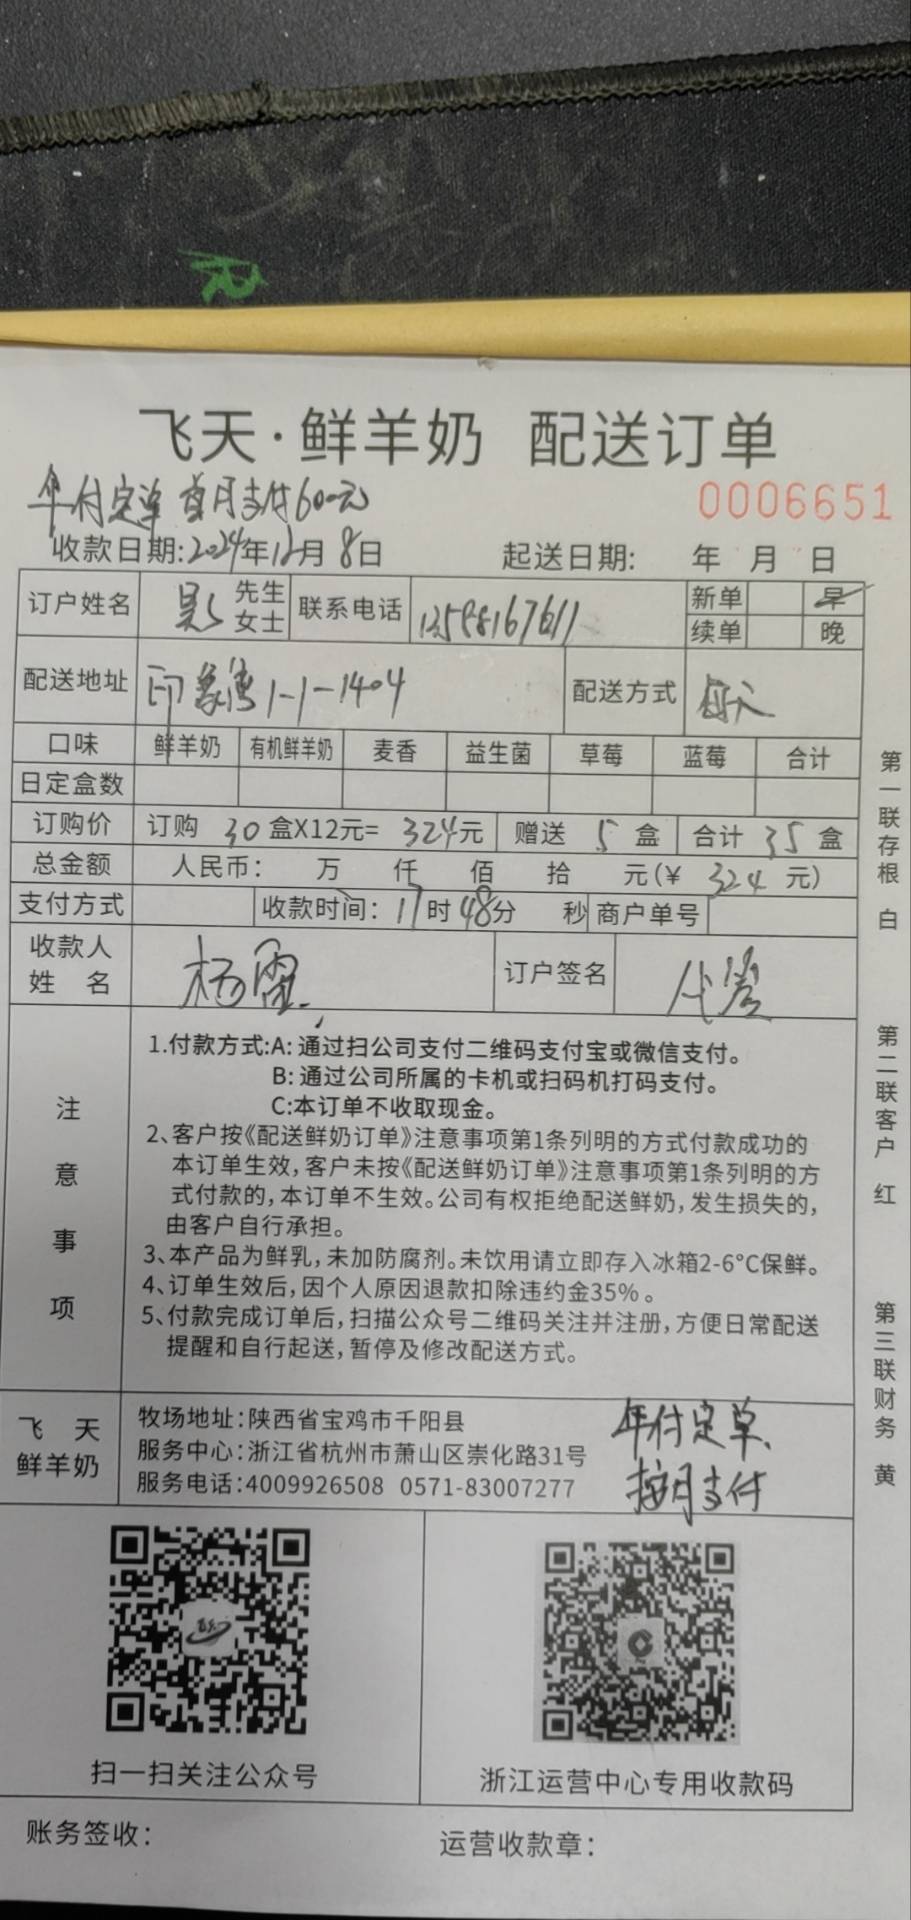 飞天·鲜羊奶 配送订单
年付定单 首月支付600元
0006651
收款日期:2024年12月8日 起送日期: 年 月 日
订户姓名 先生 女士 联系电话 13588167611 新单 早
续单 晚
配送地址 印象湾1-1-1404 配送方式
口味 鲜羊奶 有机鲜羊奶 麦香 益生菌 草莓 蓝莓 合计
日定盒数
订购价 订购 30 盒X12元= 324元 赠送 5 盒 合计 35 盒
总金额 人民币: 万 仟 佰 拾 元(¥ 324 元)
支付方式 收款时间: 17时48分 秒 商户单号
收款人
姓 名 杨雷 订户签名
注意事项
1.付款方式:A: 通过扫公司支付二维码支付宝或微信支付。
B: 通过公司所属的卡机或扫码机打码支付。
C:本订单不收取现金。
2、客户按《配送鲜奶订单》注意事项第1条列明的方式付款成功的
本订单生效,客户未按《配送鲜奶订单》注意事项第1条列明的方
式付款的,本订单不生效。公司有权拒绝配送鲜奶,发生损失的,
由客户自行承担。
3、本产品为鲜乳,未加防腐剂。未饮用请立即存入冰箱2-6°C保鲜。
4、订单生效后,因个人原因退款扣除违约金35%。
5、付款完成订单后,扫描公众号二维码关注并注册,方便日常配送
提醒和自行起送,暂停及修改配送方式。
飞 天
鲜羊奶
牧场地址:陕西省宝鸡市千阳县
服务中心:浙江省杭州市萧山区崇化路31号
服务电话:4009926508 0571-83007277
年付定单、
按月支付
扫一扫关注公众号
浙江运营中心专用收款码
账务签收:
运营收款章:
第一联存根 白
第二联客户 红
第三联财务 黄